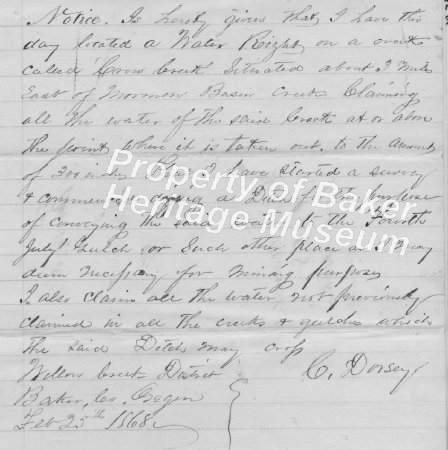 Notice. Is hereby given that I have this
day located a Water Right on a creek
called Cross Creek Situated about 1 mile
East of Mormon Basin Creek Claiming
all the water of the said Creek at or above
the point where it is taken out. to the amount
of I have started a survey
& commenced a Ditch for the purpose
of conveying the said water to the Fourth
July Gulch or Such other place as I may
deem necessary for mining purposes
I also claim all the water not previously
claimed in all the creeks & gulches which
the said Ditch may cross
Willow Creek District
C. Dorsey
Baker Co. Oregon
Feb 25th 1868
Property of Baker
Heritage Museum